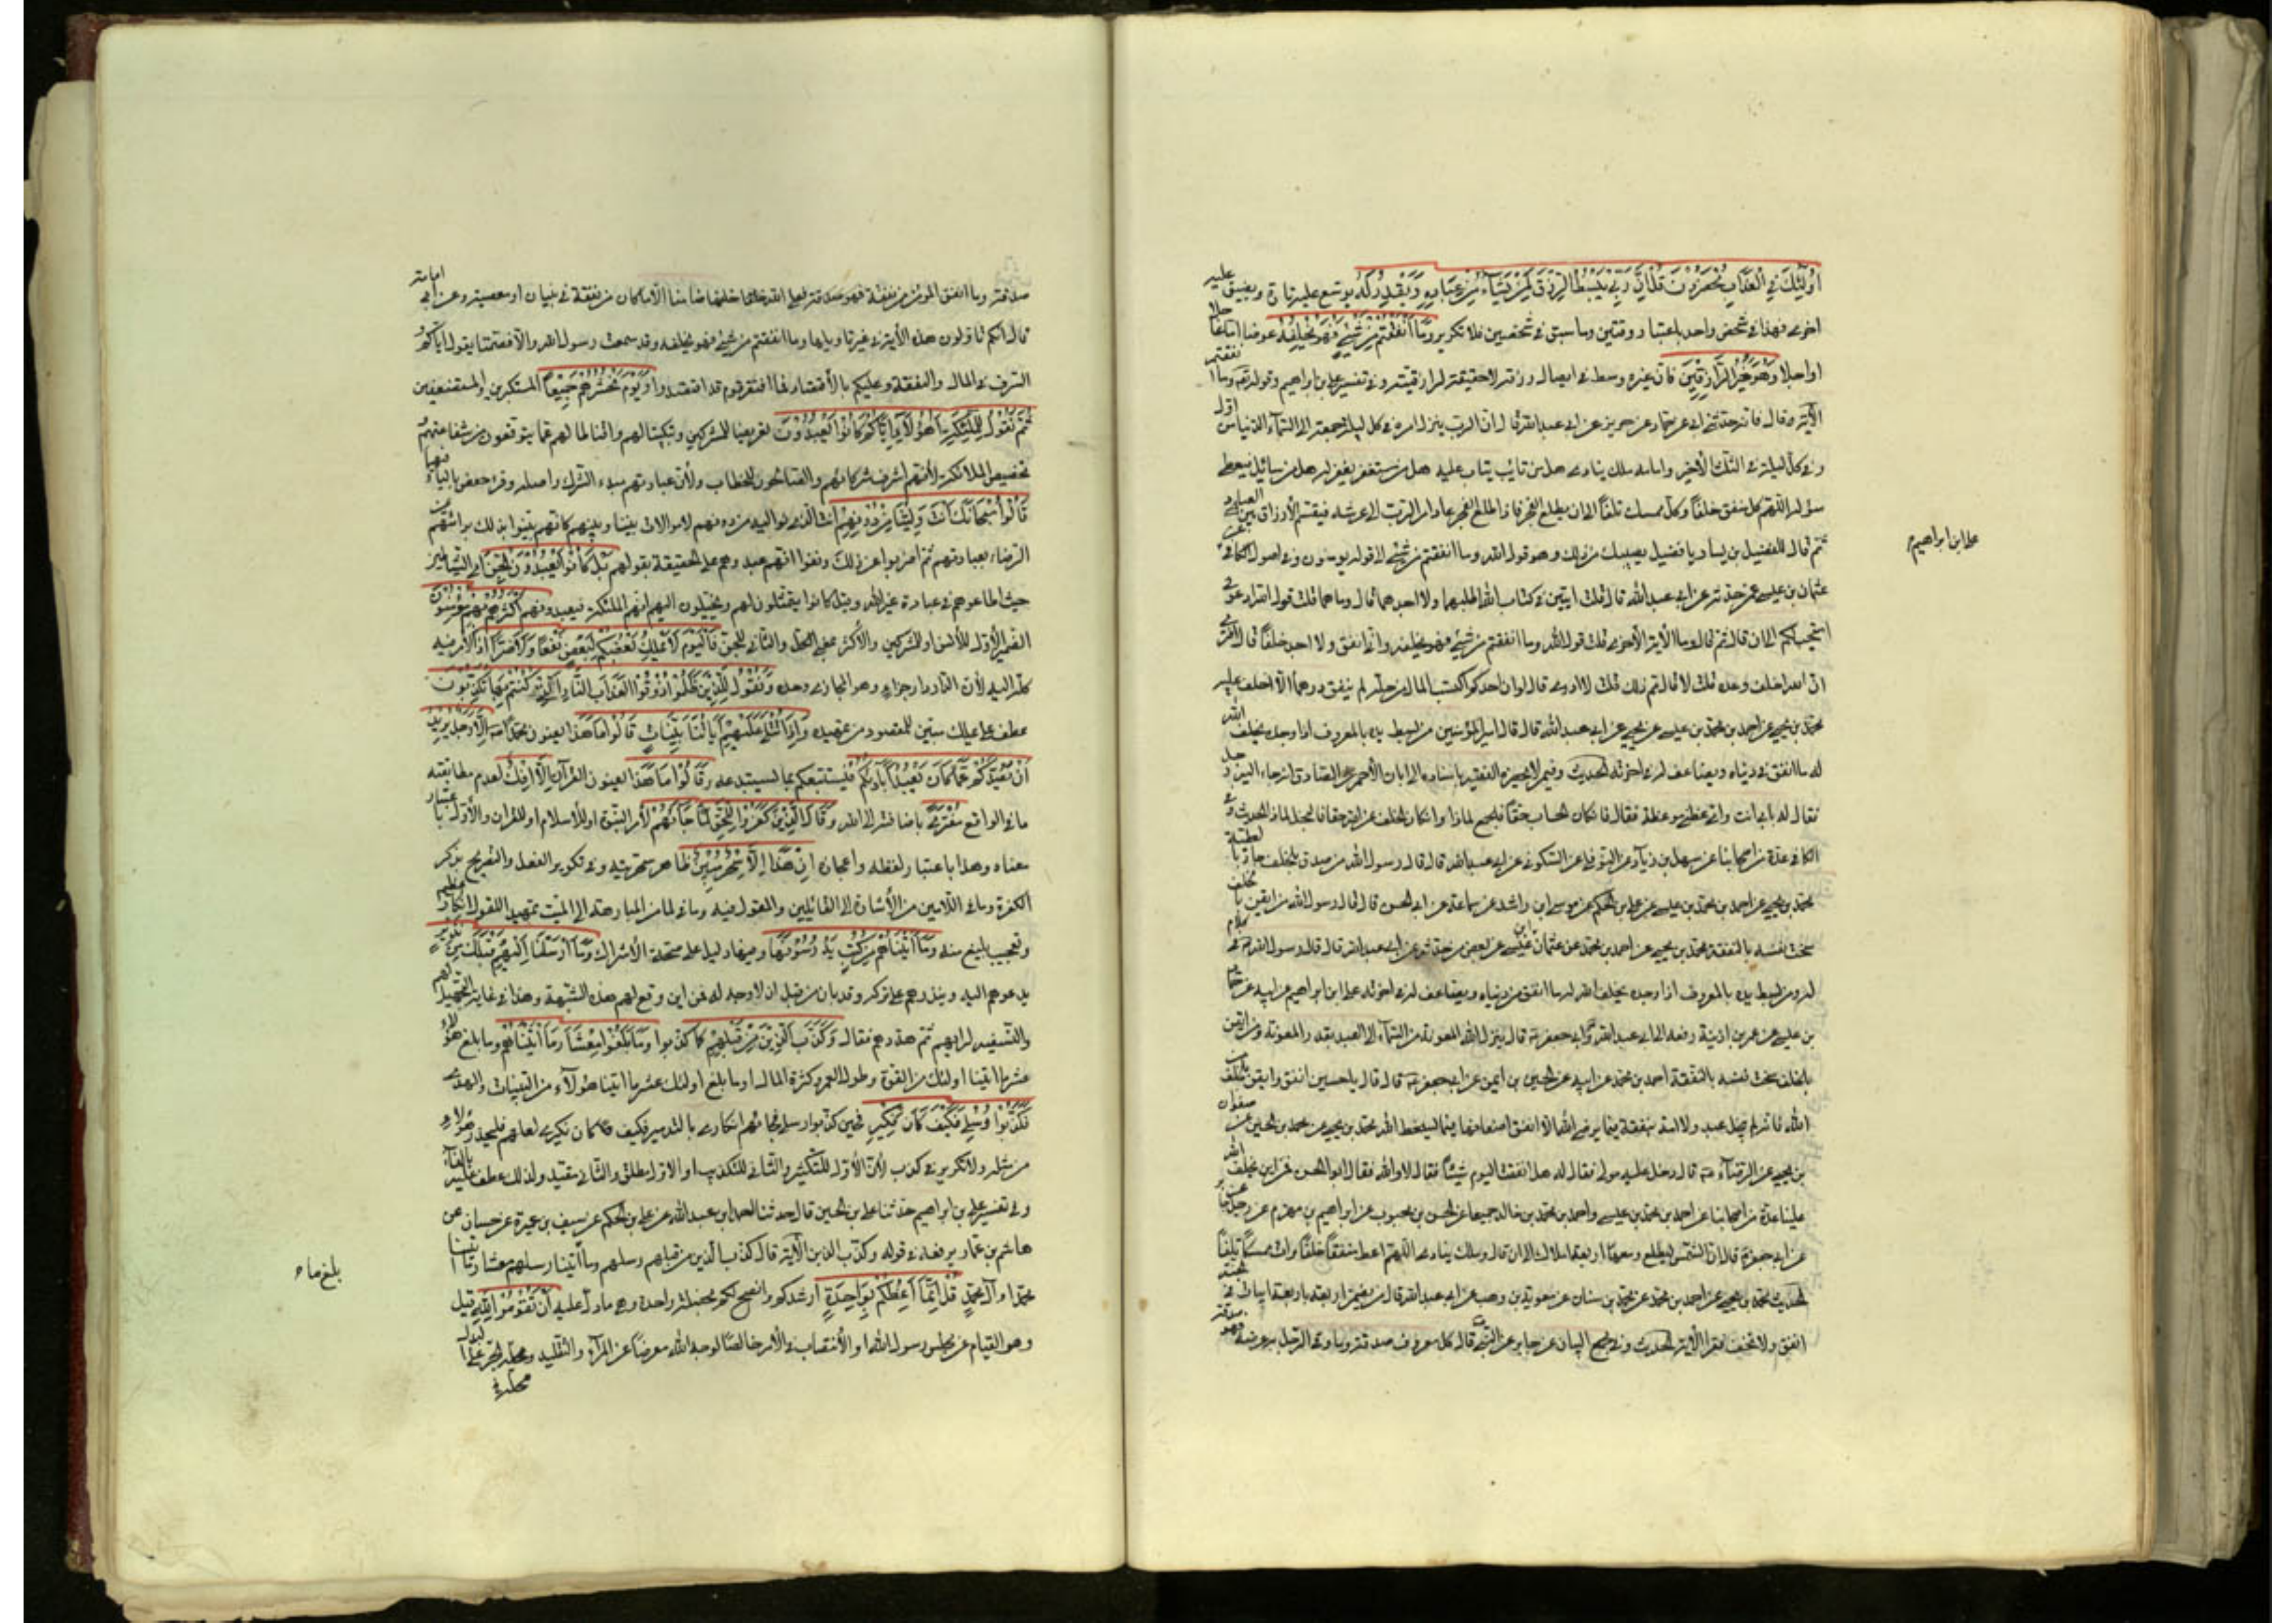 اُولٰئِكَ فِي الْعَذَابِ مُحْضَرُونَ قُلْ اِنَّ رَبِّي يَبْسُطُ الرِّزْقَ لِمَنْ يَشَاءُ مِنْ عِبَادِهِ وَيَقْدِرُ لَهُ يوسّع عليه تارة ويضيق عليه
اخرى فهذا فى شخص واحد باعتبار وقتين وما سبق فى شخصين فلا تكرير وَمَا اَنْفَقْتُمْ مِنْ شَيْءٍ فَهُوَ يُخْلِفُهُ عوضا اما عاجلا
او اجلا وَهُوَ خَيْرُ الرَّازِقِينَ فان غيره وسط فى ايصال رزقه لا حقيقة لرازقيته وفى تفسير على بن ابراهيم وقوله وما انفقتم
الآية وقال فانه حدثنى ابى عن حماد عن حريز عن ابى عبد الله قال ان الرب ينزل امره فى كل ليلة جمعة الى السماء الدنيا من اول
وفى كل ليلة فى الثلث الأخير وامامه ملك ينادى هل من تائب يتاب عليه هل من مستغفر يغفر له هل من سائل فيعطى
سؤله اللهم اعط كل منفق خلفاً وكل ممسك تلفاً الى ان يطلع الفجر فاذا طلع الفجر عاد امر الرب الى عرشه فيقسم الأرزاق بين العباد
ثم قال للفضيل بن يسار يا فضيل نصيبك من ذلك وهو قول الله وما انفقتم من شئ الى قوله يؤمنون وفى اصول الكافى
عثمان بن عيسى عمن حدثه عن ابى عبد الله قال قلت ايتين فى كتاب الله اطلبهما ولا اجدهما قال وما هما قلت قول الله ادعونى
استجب لكم الى ان قال ثم قال وما الأية الأخرى قلت قول الله وما انفقتم من شئ فهو يخلفه وانى انفق ولا ارى خلفاً قال افترى
ان الله اخلف وعده قلت لا قال فمم ذلك قلت لا ادرى قال لو ان احدكم اكتسب المال من حله لم ينفق درهما الا اخلف عليه
محمد بن يحيى عن احمد بن محمد بن عيسى عن يحيى عن ابى عبد الله قال قال امير المؤمنين من يبسط يده بالمعروف اذا وجده يخلف الله
له ما انفق فى دنياه ويضاعف له فى اخرته الحديث وفى من لا يحضره الفقيه باسناده الى ابان الأحمر عن الصادق انه جاء اليه رجل
فقال له بابى انت وامى عظنى موعظة فقال فان كان الحساب حقا فالجمع لماذا وان كان الخلف من الله حقا فالبخل لماذا الحديث وفى
الكافى عدة من اصحابنا عن سهل بن زياد عن النوفلى عن السكونى عن ابى عبد الله قال قال رسول الله من صدق بالخلف جاد بالعطية
محمد بن يحيى عن احمد بن محمد بن عيسى عن على بن الحكم عن موسى بن راشد عن سماعة عن ابى الحسن قال قال رسول الله من ايقن بالخلف
سخت نفسه بالنفقة محمد بن يحيى عن احمد بن محمد عن عثمان بن عيسى عن بعض من حدثه عن ابى عبد الله قال قال رسول الله فى كلام
له ومن يبسط يده بالمعروف اذا وجده يخلف الله له ما انفق من دنياه ويضاعف له فى اخرته على ابن ابراهيم عن ابيه عن حماد
بن عيسى عن عمر بن اذينة رفعه الى ابى عبد الله او ابى جعفر قال ينزل الله المعونة من السماء الى العبد بقدر المعونة ومن ايقن
بالخلف سخت نفسه بالنفقة احمد بن محمد عن ابيه عن الحسين بن ايمن عن ابى جعفر قال قال يا حسين انفق وايقن بالخلف من
الله فانه لم يبخل عبد ولا امة بنفقة فيما يرضى الله الا انفق اضعافها فيما يسخط الله محمد بن يحيى عن محمد بن الحسين عن صفوان
بن يحيى عن الرضا قال دخل عليه مولى فقال له هل انفقت اليوم شيئاً فقال لا والله فقال ابو الحسن فمن اين يخلف الله
علينا عدة من اصحابنا عن احمد بن محمد بن عيسى واحمد بن محمد بن خالد جميعا عن الحسن بن محبوب عن ابراهيم بن مهزم عن رجل عن جابر
عن ابى جعفر قال ان الشمس لتطلع ومعها اربعة املاك الى ان قال وملك ينادى اللهم اعط منفقاً خلفاً وات ممسكا تلفاً
الحديث محمد بن يحيى عن احمد بن محمد عن محمد بن سنان عن معوية بن وهب عن ابى عبد الله قال من يضمن اربعة باربعة ابيات فى الجنة
انفق ولا تخف فقرا الأية الحديث وفى مجمع البيان عن جابر عن النبى قال كل معروف صدقة وما وقى الرجل به عرضه فهو صدقة
على ابن ابراهيم
صدقة وما انفق المؤمن من نفقة فهو صدقة فعلى الله خلفها ضامنا الا ما كان من نفقة فى بنيان او معصية وعن ابى امامة
قال انكم تاولون هذه الأية فى غير تاويلها وما انفقتم من شئ فهو يخلفه وقد سمعت رسول الله والا فصمتا يقول اياكم و
السرف فى المال والنفقة وعليكم بالأقتصاد فما افتقر قوم قد اقتصدوا وَيَوْمَ نَحْشُرُهُمْ جَمِيعًا المستكبرين والمستضعفين
ثُمَّ نَقُولُ لِلْمَلَئِكَةِ اَهٰؤُلَاءِ اِيَّاكُمْ كَانُوا يَعْبُدُونَ تقريعا للمشركين وتبكيتا لهم واقناطا لهم عما يتوقعون من شفاعتهم و
تخصيص الملائكة لأنهم اشرف شركائهم والصالحون للخطاب ولأن عبادتهم مبدء الشرك واصله وقرء حفص بالياء فيهما
قَالُوا سُبْحَانَكَ اَنْتَ وَلِيُّنَا مِنْ دُونِهِمْ انت الذى نواليه من دونهم لا موالات بيننا وبينهم كانهم بينوا بذلك براءتهم عن
الرضاء بعبادتهم ثم اضربوا عن ذلك ونفوا انهم عبدوهم على الحقيقة بقولهم بَلْ كَانُوا يَعْبُدُونَ الْجِنَّ اى الشياطين
حيث اطاعوهم فى عبادة غير الله وقيل كانوا يتمثلون لهم ويخيلون اليهم انهم الملئكة فيعبدونهم اَكْثَرُهُمْ بِهِمْ مُؤْمِنُونَ
الضمير الأول للأنس او للمشركين والأكثر بمعنى الكل والثانى للجن فَالْيَوْمَ لَا يَمْلِكُ بَعْضُكُمْ لِبَعْضٍ نَفْعًا وَلَا ضَرًّا اذ الأمر فيه
كله اليه لأن الدار دار جزاء وهو المجازى وحده وَنَقُولُ لِلَّذِينَ ظَلَمُوا ذُوقُوا الْعَذَابَ النَّارِ الَّتِي كُنْتُمْ بِهَا تُكَذِّبُونَ
عطف على يملك مبين للمقصود من تمهيده وَاِذَا تُتْلٰى عَلَيْهِمْ اٰيَاتُنَا بَيِّنَاتٍ قَالُوا مَا هٰذَا يعنون محمدا اِلَّا رَجُلٌ يُرِيدُ
اَنْ يَصُدَّكُمْ عَمَّا كَانَ يَعْبُدُ اٰبَاؤُكُمْ فيستتبعكم بما يستبدعه وَقَالُوا مَا هٰذَا يعنون القرآن اِلَّا اِفْكٌ لعدم مطابقته
ما فى الواقع مُفْتَرًى باضافته الى الله وَقَالَ الَّذِينَ كَفَرُوا لِلْحَقِّ لَمَّا جَاءَهُمْ لأمر النبوة او للأسلام او للقران والأول باعتبار
معناه وهذا باعتبار لفظه واعجازه اِنْ هٰذَا اِلَّا سِحْرٌ مُبِينٌ ظاهر سحريته وفى تكرير الفعل والتصريح بذكر
الكفرة وما فى اللامين من الأشارة الى القائلين والمقول فيه وما فى لما من المبادهة الى البت بهذا القول انكار عظيم
وتعجيب بليغ منه وَمَا اٰتَيْنَاهُمْ مِنْ كُتُبٍ يَدْرُسُونَهَا وفيها دليل على صحة الأشراك وَمَا اَرْسَلْنَا اِلَيْهِمْ قَبْلَكَ مِنْ نَذِيرٍ
يدعوهم اليه وينذرهم على تركه وقد بان من قبل ان لا وجه له فمن اين وقع لهم هذه الشبهة وهذا فى غاية التجهيل لهم
والتسفيه لرأيهم ثم هددهم فقال وَكَذَّبَ الَّذِينَ مِنْ قَبْلِهِمْ كما كذبوا وَمَا بَلَغُوا مِعْشَارَ مَا اٰتَيْنَاهُمْ وما بلغ هؤلاء
عشر ما اتينا اولئك من القوة وطول العمر وكثرة المال او ما بلغ اولئك عشر ما اتينا هؤلاء من البينات والهدى
فَكَذَّبُوا رُسُلِي فَكَيْفَ كَانَ نَكِيرِ فحين كذبوا رسلى جاءهم انكارى بالتدمير فكيف كان نكيرى لهم فليحذر هؤلاء
من مثله ولا تكرير فى كذب لأن الأول للتكثير والثانى للتكذيب او الاول مطلق والثانى مقيد ولذلك عطف عليه بالفاء
وفى تفسير على بن ابراهيم حدثنا على بن الحسين قال حدثنا احمد بن ابى عبد الله عن على بن الحكم عن سيف بن عميرة عن حسان عن
هاشم بن عمار يرفعه فى قوله وكذب الذين الأية قال كذب الذين من قبلهم رسلهم وما اتينا رسلهم معشار ما اتينا
محمدا وآل محمد قُلْ اِنَّمَا اَعِظُكُمْ بِوَاحِدَةٍ ارشدكم وانصح لكم بخصلة واحدة وهى ما دل عليه اَنْ تَقُومُوا لِلّٰهِ قيل
وهو القيام عن مجلس رسول الله او الأنتصاب فى الأمر خالصاً لوجه الله معرضاً عن المرآء والتقليد ومحله الجر على البدل
محله
بلغ